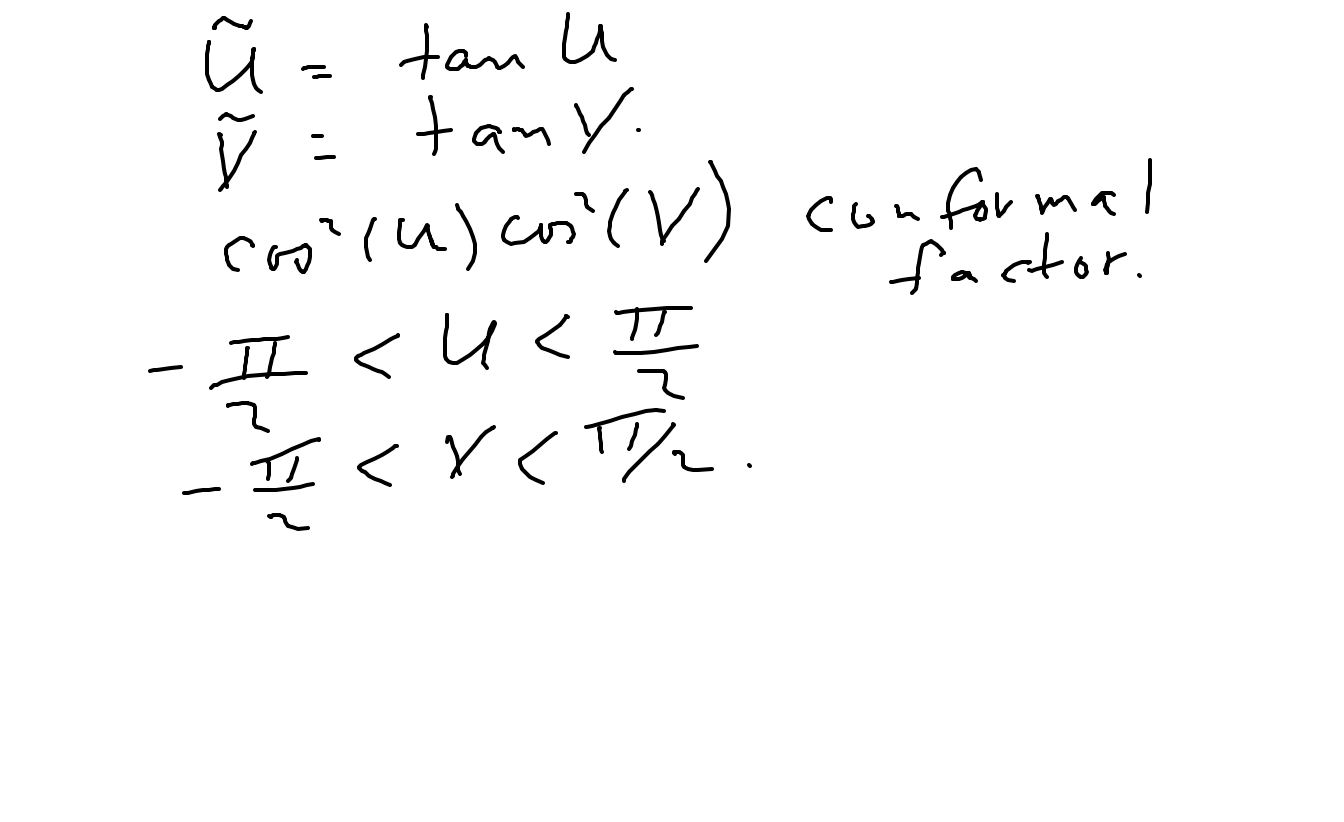 Ũ = tan U
Ṽ = tan V.
cos²(U) cos²(V) conformal factor.
-π/2 < U < π/2
-π/2 < V < π/2.